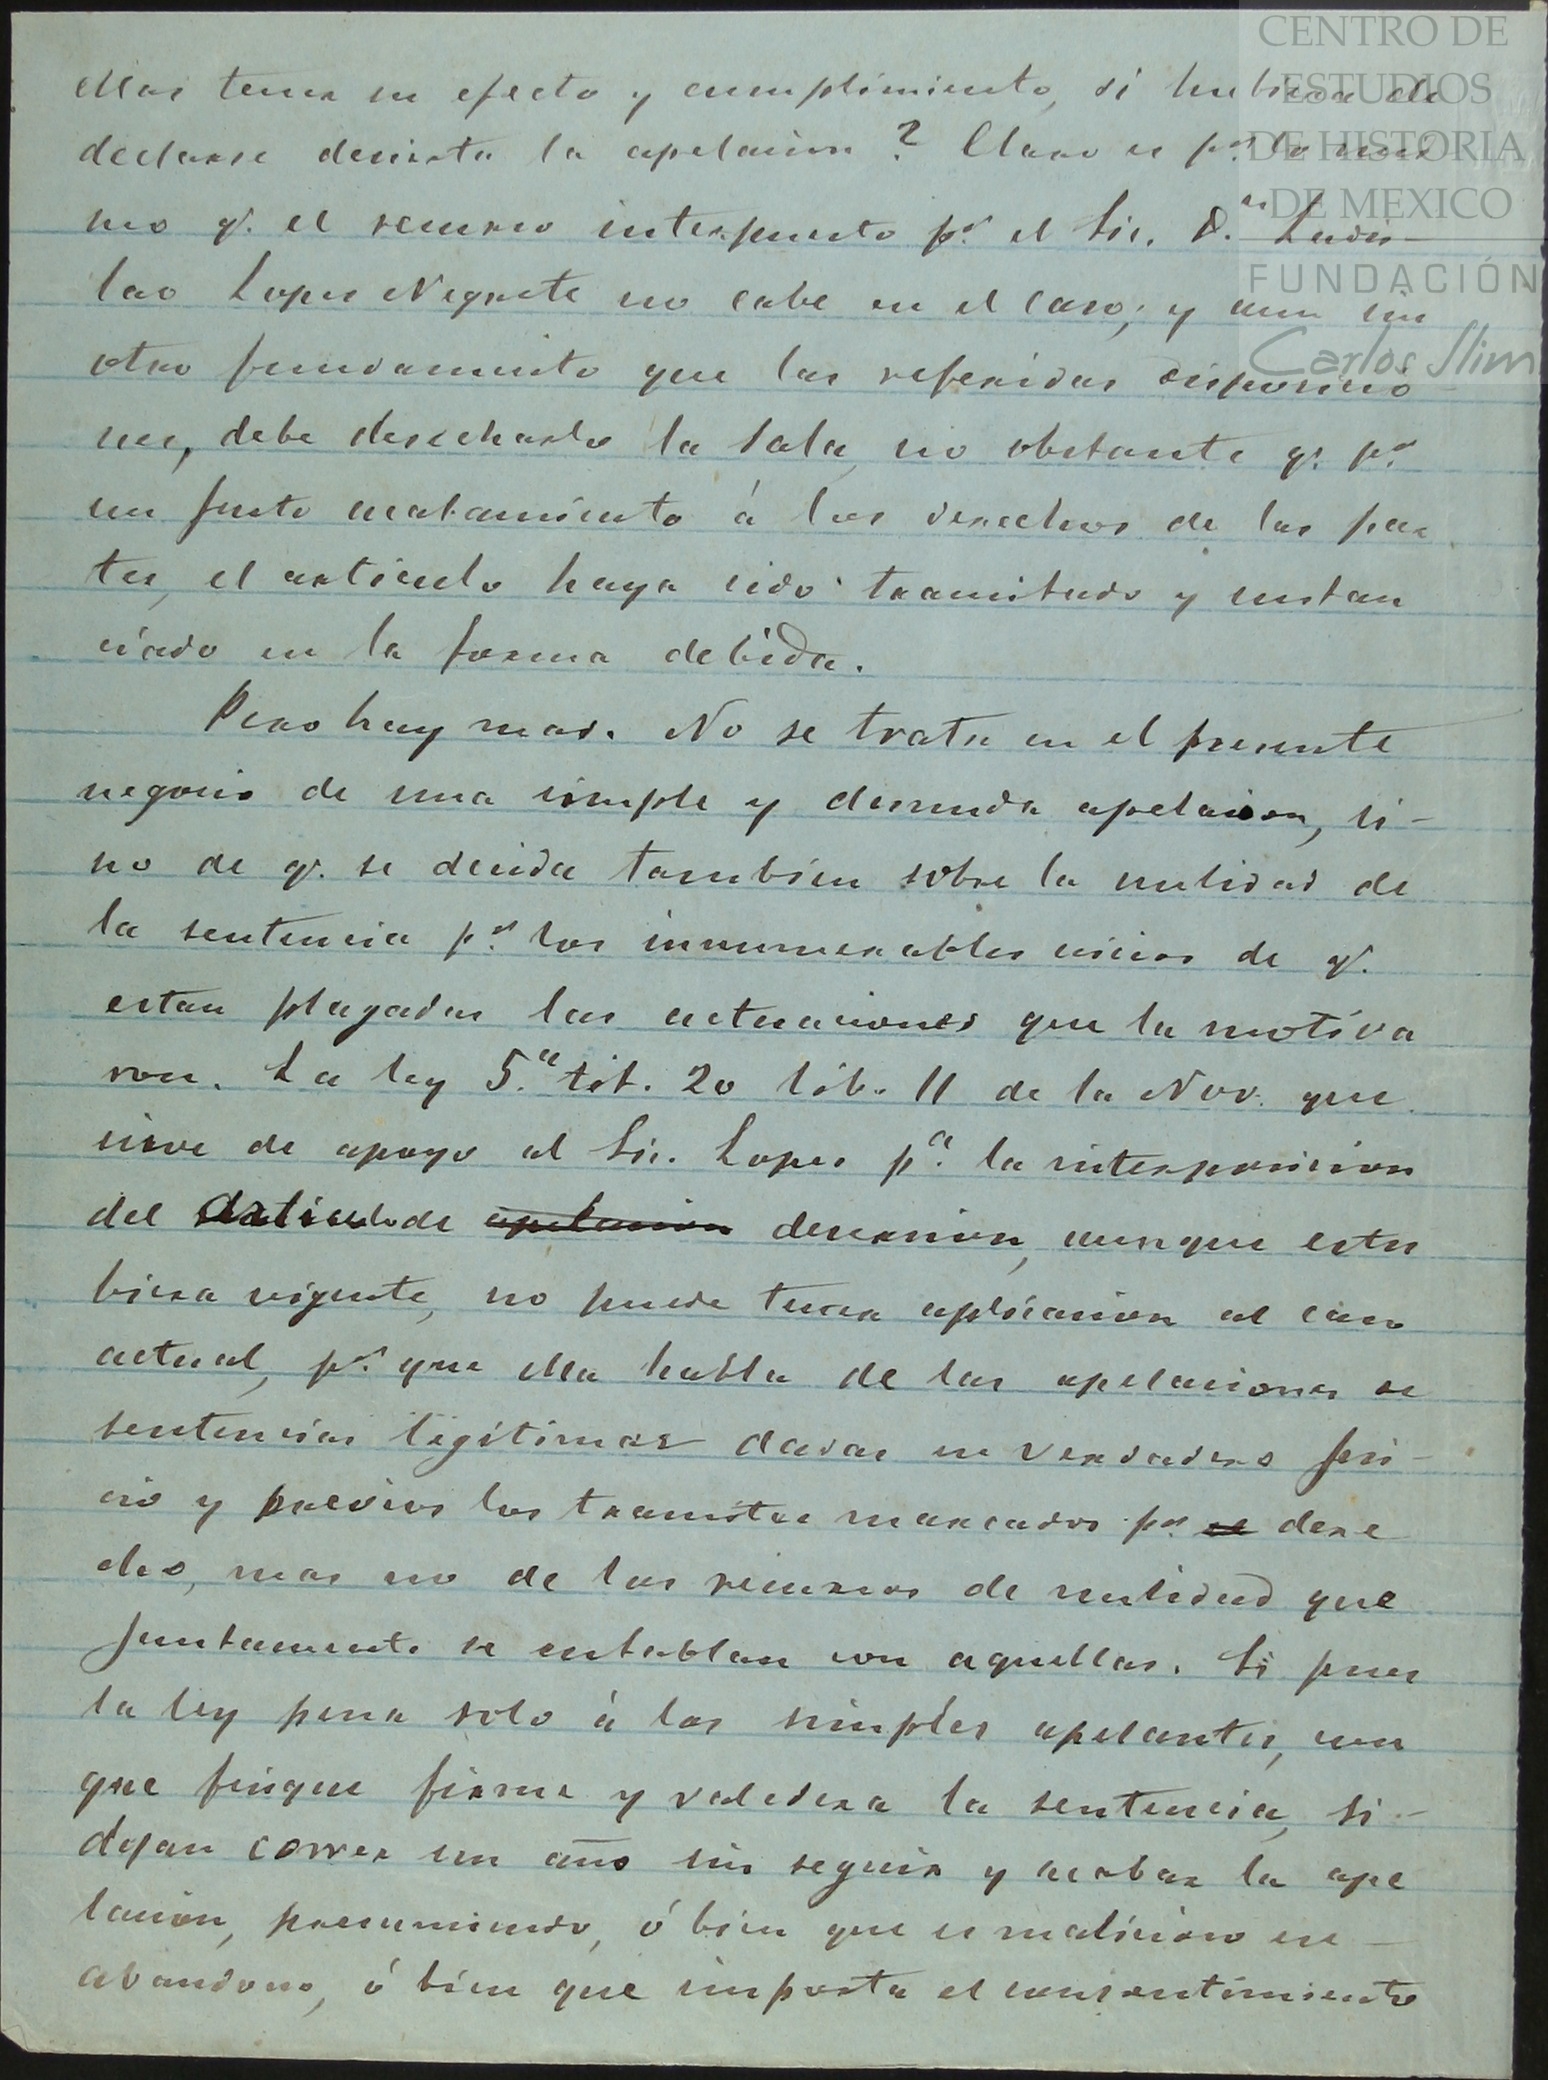 CENTRO DE
ESTUDIOS
DE HISTORIA
DE MEXICO
FUNDACIÓN
Carlos Slim
ellas tener su efecto y cumplimiento, si hubiera de
declarse desierta la apelacion? Claro es pr. lo mis
mo q. el recurso interpuesto pr. el Lic. Dn. Ladis-
lao Lopez Negrete no cabe en el caso; y aun sin
otro fundamento que las referidas disposicio-
nes, debe desecharlo la Sala, no obstante q. pr.
un justo acatamiento á los derechos de las par
tes, el articulo haya sido tramitado y sustan
ciado en la forma debida.
Pero hay mas. No se trata en el presente
negocio de una simple y desnuda apelacion, si-
no de q. se decida tambien sobre la nulidad de
la sentencia pr. los innumerables vicios de q.
estan plagadas las actuaciones que la motiva
ron. La ley 5.a tit. 20 lib. 11 de la Nov. que
sirve de apoyo al Lic. Lopez pa. la interposicion
del Articulo de apelacion desercion, aunque estu
biera vigente, no puede tener aplicacion al caso
actual, pr. que ella habla de las apelaciones de
sentencias legítimas dadas en verdadero jui-
cio y previos los tramites marcados pr. el dere
cho, mas no de los recursos de nulidad que
juntamente se entablan con aquellas. Si pues
la ley pena solo á los simples apelantes, con
que finque firme y valedera la sentencia, si-
dejan correr un año sin seguir y acabar la ape
lacion, presumiendo, ó bien que es malicioso ese-
abandono, ó bien que importa el consentimiento